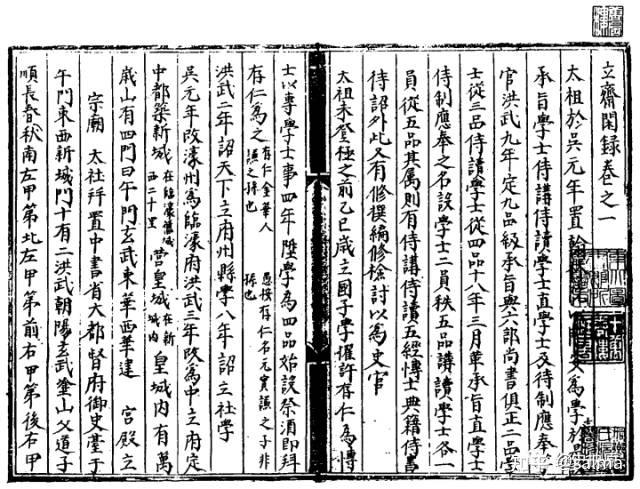 立齋閑錄卷之一
太祖於吳元年置翰林 為學
承旨學士侍講侍讀學士直學士及待制應奉
官洪武九年定九品級承旨與六部尚書俱正二品學
士從三品侍讀學士從四品十八年三月革承旨直學士
待制應奉之名設學士二員秩五品講讀學士各一
員從五品其属則有侍講侍讀五經博士典籍侍書
待詔外此又有修撰編修檢討以為史官
太祖未登極之前乙巳歲立國子學擢許存仁為博
士以專學士事四年陞學為四品始設祭酒即拜
存仁為之存仁金華人謙之孫也 愚按存仁名元實謙之子非孫也
洪武二年詔天下立府州縣學八年詔立社學
吳元年改濠州為臨濠府洪武三年改為中立府定
中都築新城在臨濠舊城西二十里營皇城在新城內皇城內有萬
歲山有四門曰午門玄武東華西華建 宮殿立
宗廟 太社并置中書省大都督府御史臺于
午門東西新城門十有二洪武朝陽玄武塗山父道子
順長春秋南左甲第北左甲第前右甲第後右甲
知乎 @salma